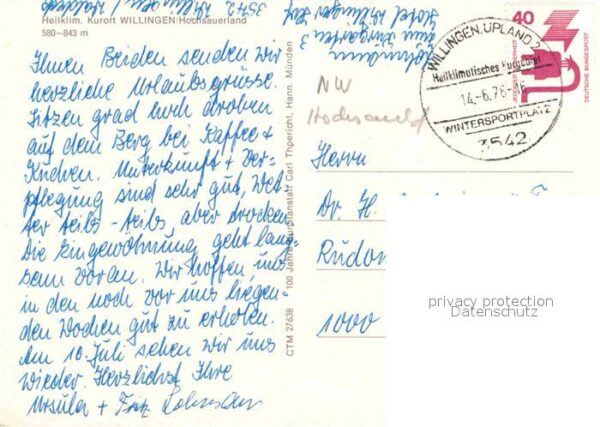 Heilklim. Kurort WILLINGEN/Hochsauerland
580–843 m
Ihnen Beiden senden wir
herzliche Urlaubsgrüsse.
Sitzen grad hoch droben
auf dem Berg bei Kaffee +
Kuchen. Unterkunft + Ver-
pflegung sind sehr gut, Wet-
ter teils - teils, aber trocken.
Die Eingewöhnung geht lang-
sam voran. Wir hoffen, uns
in den noch vor uns liegen-
den Wochen gut zu erholen.
Am 10. Juli sehen wir uns
wieder. Herzlichst Ihre
Ursula + Fritz
CTM 27638 100 Jahre Kunstanstalt Carl Thoericht, Hann. Münden
3542 Willingen
Hotel Willinger Hof
zum Kurgarten 3
NW
40
DEUTSCHE BUNDESPOST
WILLINGEN, UPLAND 2
Heilklimatisches Kurgebiet
14.-6.76-16
WINTERSPORTPLATZ
3542
Herrn
Dr. H.
1000
privacy protection
Datenschutz